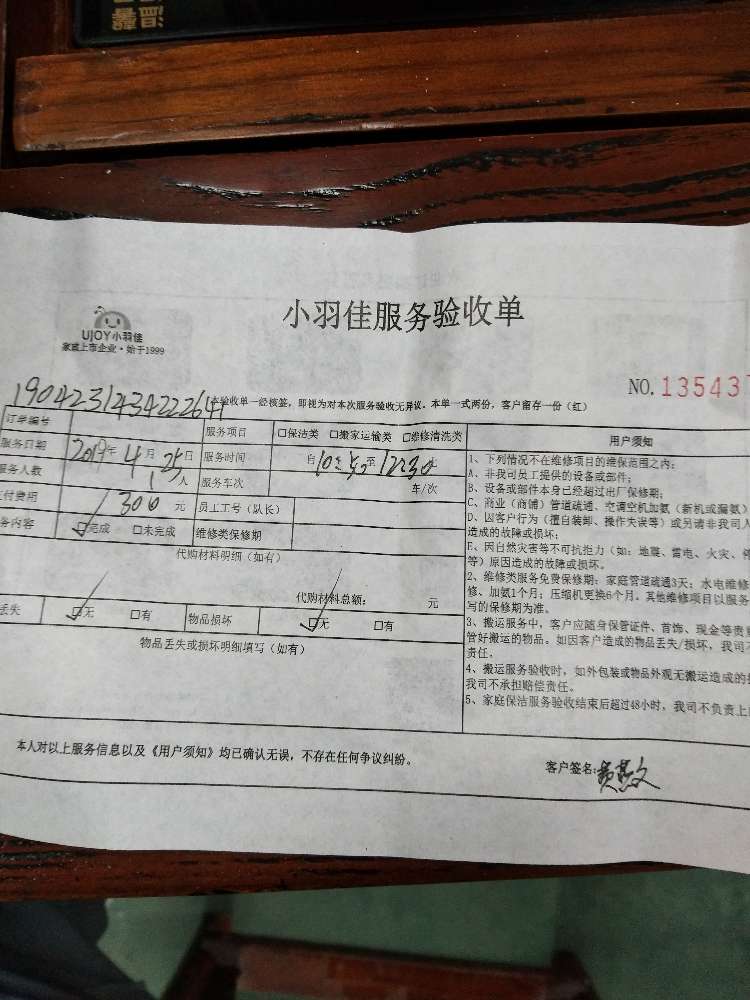 小羽佳服务验收单
UJOY小羽佳
家政上市企业·始于1999
NO.135437
1904231434222641
本验收单一经核签，即视为对本次服务验收无异议。本单一式两份，客户留存一份（红）
订单编号 服务项目 □保洁类 □搬家运输类 □维修清洗类 用户须知
服务日期 2019年4月25日 服务时间 自 至 1230
服务人数 1人 服务车次 车/次
付费用 300元 员工工号（队长）
务内容 ☑完成 □未完成 维修类保修期
代购材料明细（如有）
代购材料总额： 元
丢失 ☑无 □有 物品损坏 ☑无 □有
物品丢失或损坏明细填写（如有）
1、下列情况不在维修项目的维保范围之内：
A、非我司员工提供的设备或部件；
B、设备或部件本身已经超过出厂保修期；
C、商业（商铺）管道疏通、空调空机加氨（新机或漏氨）
D、因客户行为（擅自装卸、操作失误等）或另请非我司人
造成的故障或损坏；
E、因自然灾害等不可抗拒力（如：地震、雷电、火灾、停
等）原因造成的故障或损坏。
2、维修类服务免费保修期：家庭管道疏通3天；水电维修
修、加氨1个月；压缩机更换6个月。其他维修项目以服务
写的保修期为准。
3、搬运服务中，客户应随身保管证件、首饰、现金等贵
管好搬运的物品。如因客户造成的物品丢失/损坏，我司不
责任。
4、搬运服务验收时，如外包装或物品外观无搬运造成的
我司不承担赔偿责任。
5、家庭保洁服务验收结束后超过48小时，我司不负责上
本人对以上服务信息以及《用户须知》均已确认无误，不存在任何争议纠纷。
客户签名：